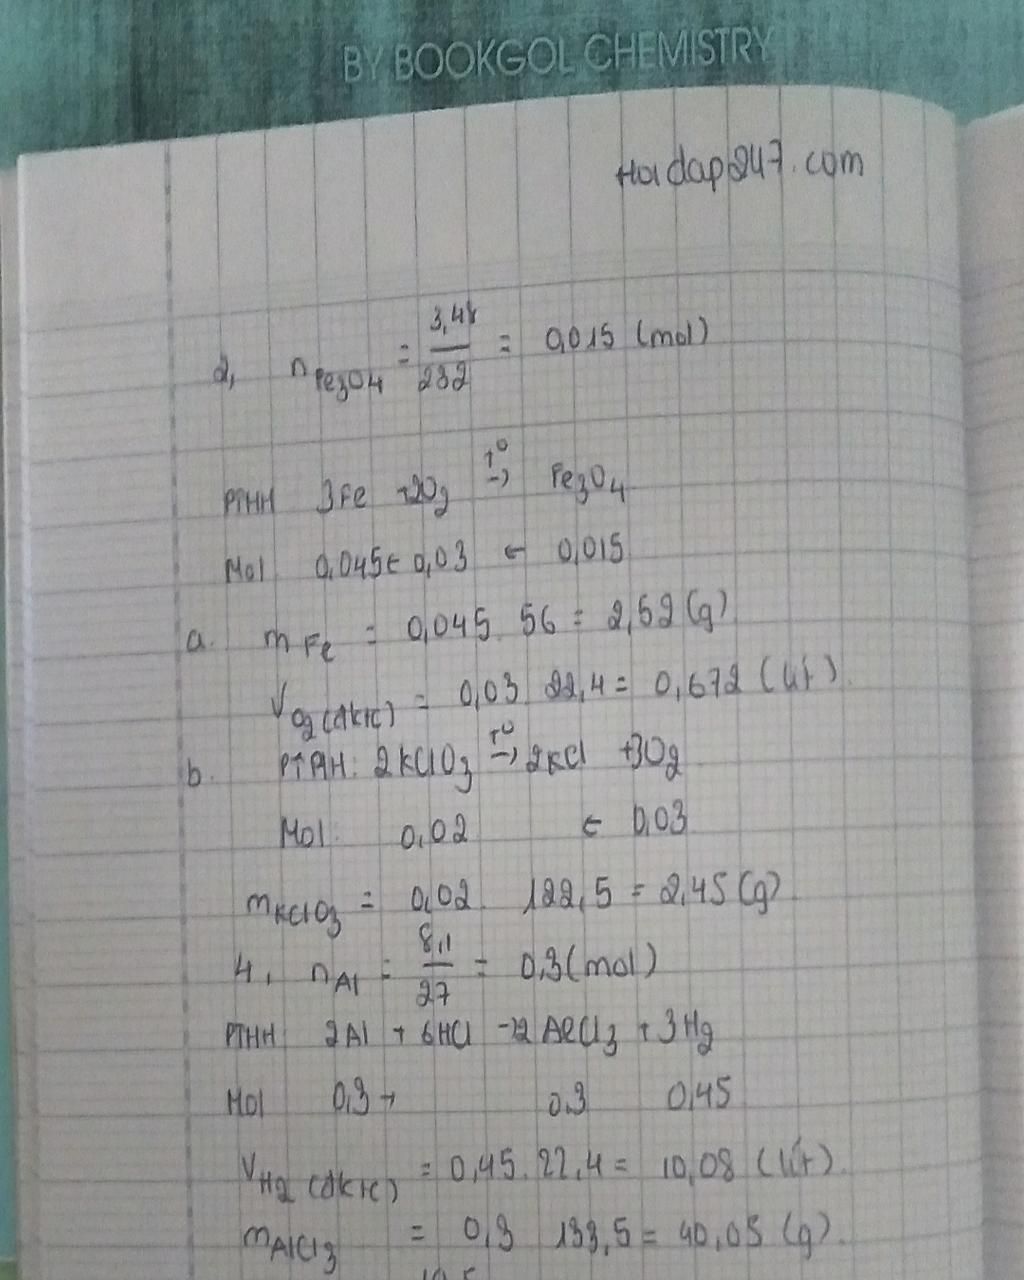 BY BOOKGOL CHEMISTRY
Hoidap247.com
2, nFe3O4 = 3,48/232 = 0,015 (mol)
PTHH 3Fe +2O2 t° → Fe3O4
Mol 0,045 ← 0,03 ← 0,015
a. mFe = 0,045 56 = 2,52 (g)
VO2(đktc) = 0,03 22,4 = 0,672 (lít)
b. PTHH: 2KClO3 t° → 2KCl +3O2
Mol: 0,02 ← 0,03
mKClO3 = 0,02 122,5 = 2,45 (g)
4, nAl = 8,1/27 = 0,3 (mol)
PTHH 2Al + 6HCl → 2AlCl3 + 3H2
Mol 0,3 → 0,3 0,45
VH2(đktc) = 0,45. 22,4 = 10,08 (lít).
mAlCl3 = 0,3 133,5 = 40,05 (g).